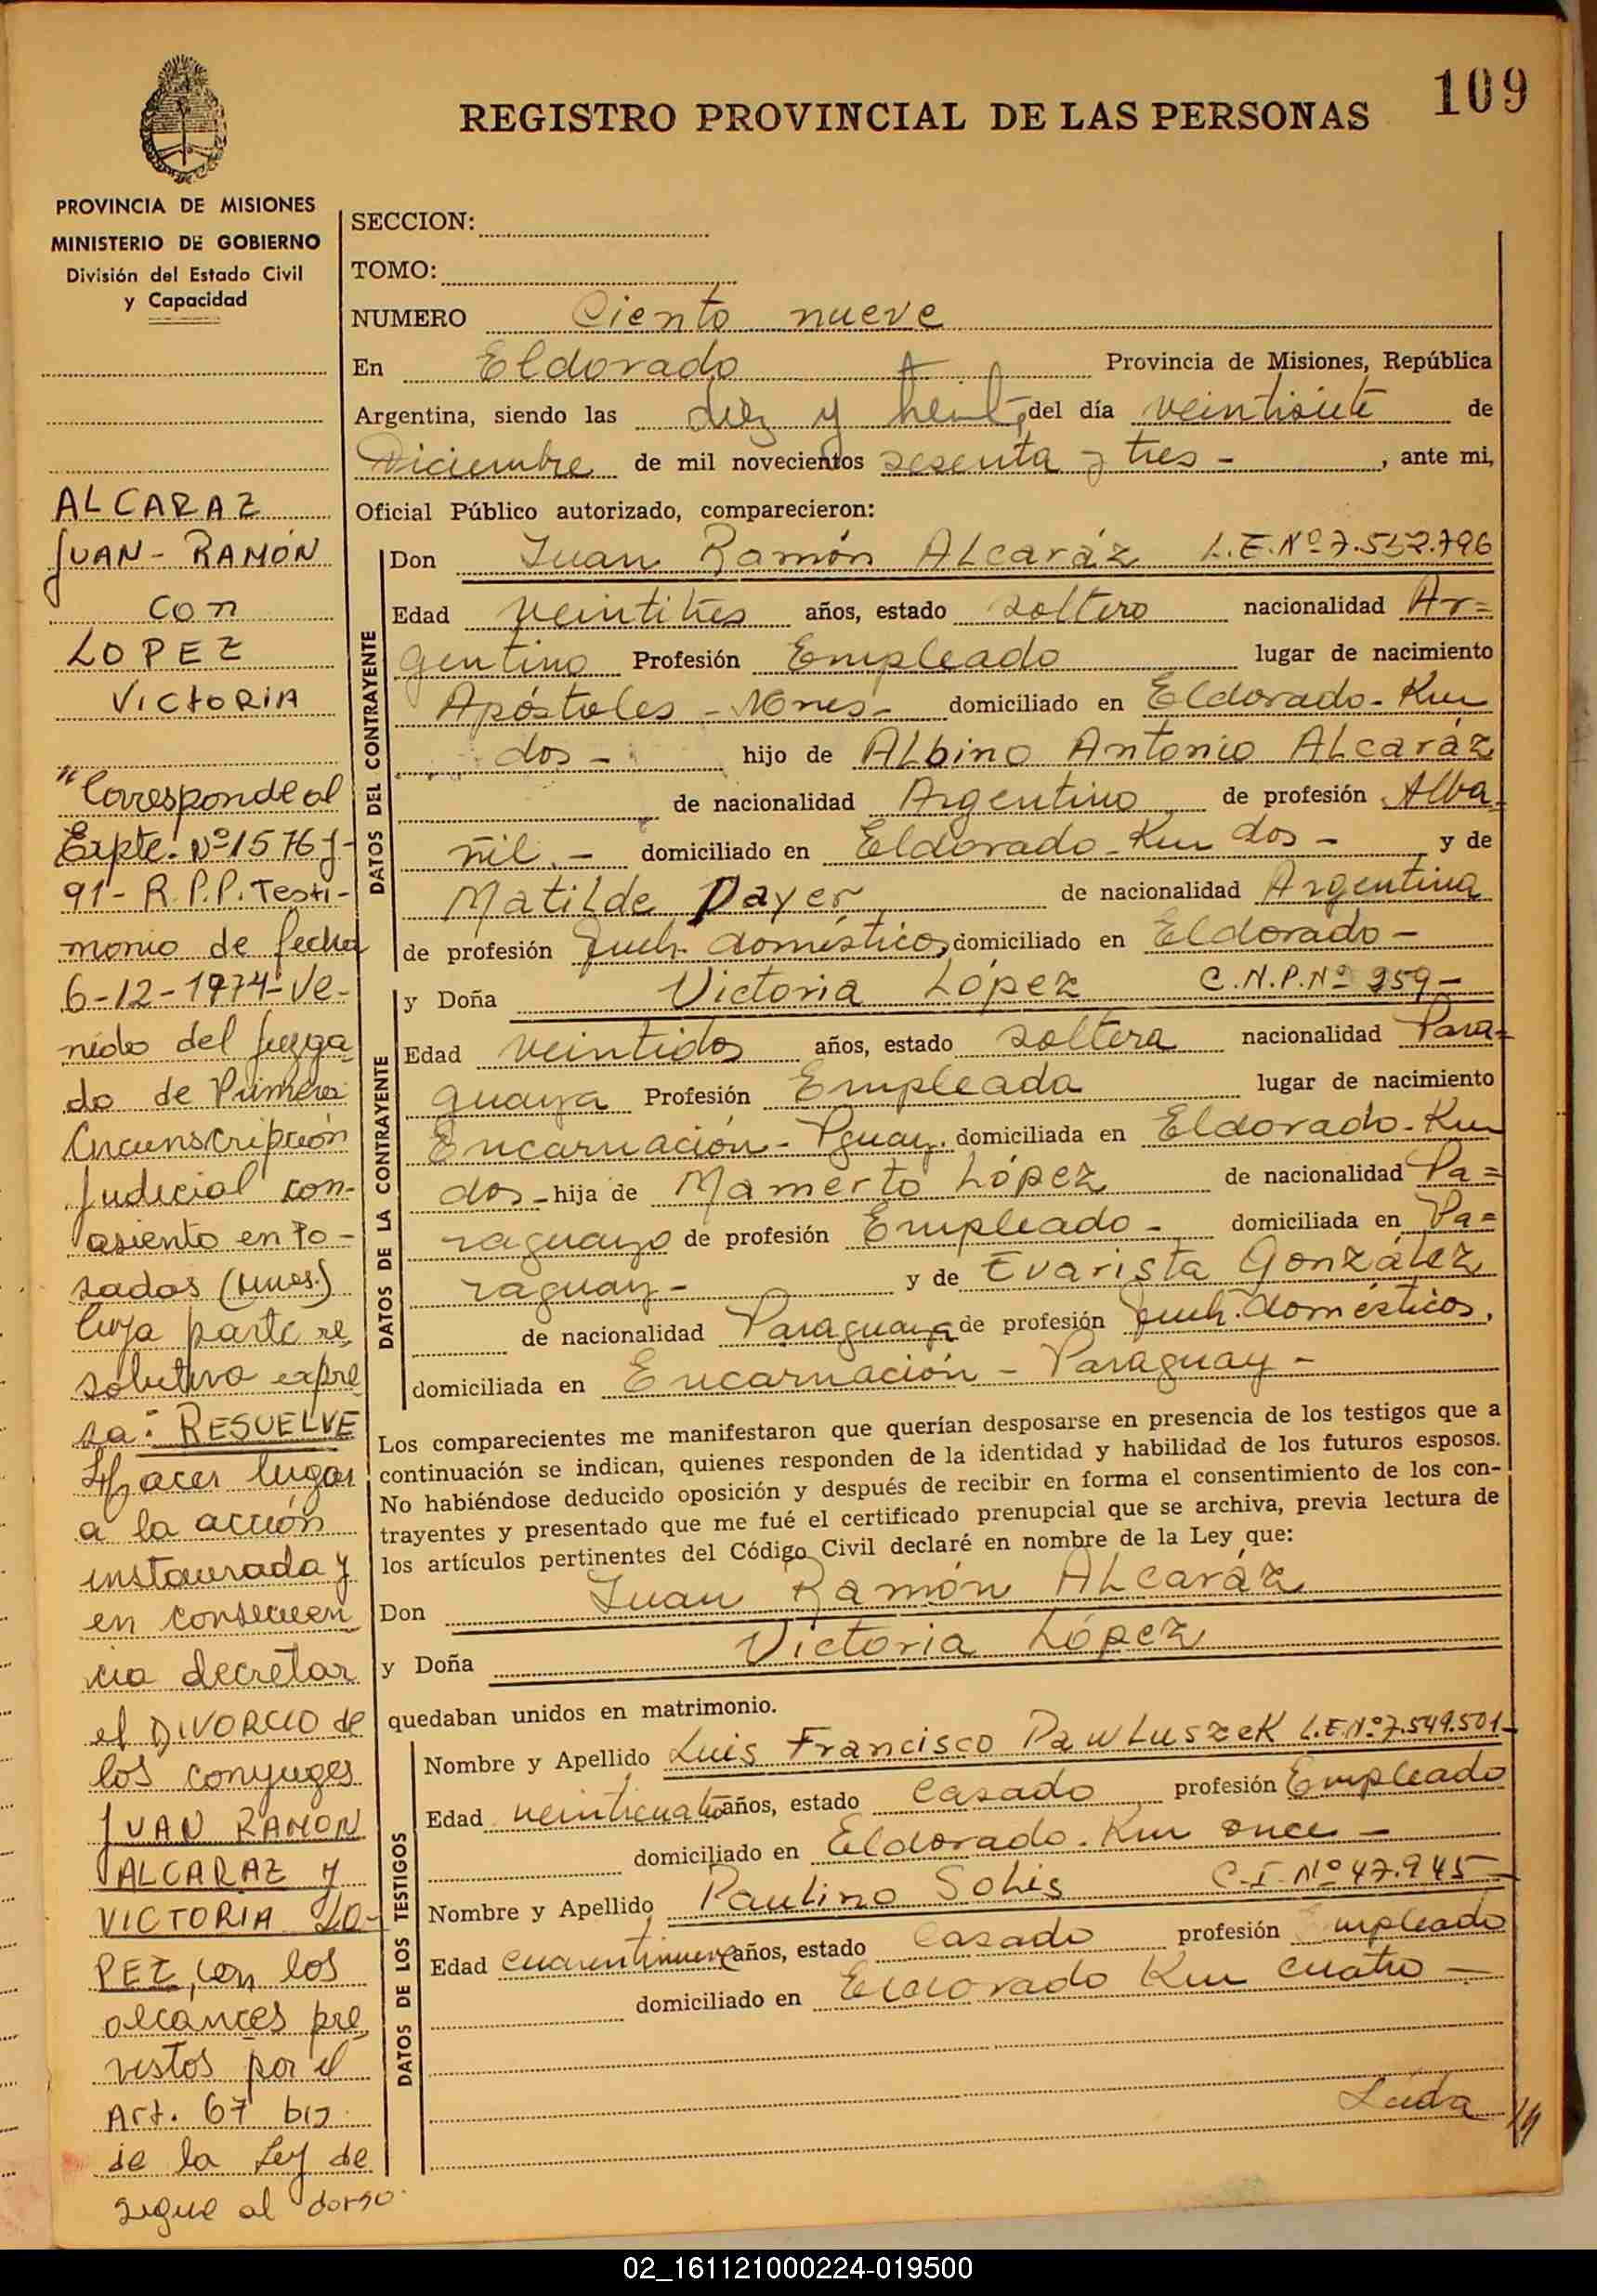 109
REGISTRO PROVINCIAL DE LAS PERSONAS
PROVINCIA DE MISIONES
MINISTERIO DE GOBIERNO
División del Estado Civil
y Capacidad
ALCARAZ
JUAN - RAMÓN
con
LOPEZ
VICTORIA
"Corresponde al
Expte. Nº 1576 J-
91 - R.P.P. Testi-
monio de fecha
6-12-1974 - Ve-
nido del Juzga
do de Primera
Circunscripción
Judicial con-
asiento en Po-
sadas (Mnes.)
Cuya parte re
solutiva expre
sa: RESUELVE
Hacer lugar
a la acción
instaurada y
en consecuen
cia decretar
el DIVORCIO de
los conyuges
JUAN RAMON
ALCARAZ y
VICTORIA LO-
PEZ, con los
alcances pre
vistos por el
Art. 67 bis
de la Ley de
sigue al dorso
SECCION:
TOMO:
NUMERO Ciento nueve
En Eldorado Provincia de Misiones, República
Argentina, siendo las diez y treinta del día veintisiete de
Diciembre de mil novecientos sesenta y tres - , ante mi,
Oficial Público autorizado, comparecieron:
DATOS DEL CONTRAYENTE
Don Juan Ramón Alcaráz L.E.Nº 7.552.796
Edad veintitres años, estado soltero nacionalidad Ar=
gentino Profesión Empleado lugar de nacimiento
Apóstoles - Mnes - domiciliado en Eldorado - Km
dos - hijo de Albino Antonio Alcaráz
de nacionalidad Argentino de profesión Alba=
ñil. - domiciliado en Eldorado - Km dos - y de
Matilde Dayer de nacionalidad Argentina
de profesión Queh. domésticos, domiciliado en Eldorado -
DATOS DE LA CONTRAYENTE
y Doña Victoria López C.N.P.Nº 959 -
Edad veintidos años, estado soltera nacionalidad Para=
guaya Profesión Empleada lugar de nacimiento
Encarnación - Pguay. domiciliada en Eldorado - Km
dos - hija de Mamerto López de nacionalidad Pa=
raguayo de profesión Empleado - domiciliada en Pa=
raguay - y de Evarista González
de nacionalidad Paraguaya de profesión Queh. domésticos,
domiciliada en Encarnación - Paraguay -
Los comparecientes me manifestaron que querían desposarse en presencia de los testigos que a
continuación se indican, quienes responden de la identidad y habilidad de los futuros esposos.
No habiéndose deducido oposición y después de recibir en forma el consentimiento de los con-
trayentes y presentado que me fué el certificado prenupcial que se archiva, previa lectura de
los artículos pertinentes del Código Civil declaré en nombre de la Ley que:
Don Juan Ramón Alcaráz
y Doña Victoria López
quedaban unidos en matrimonio.
DATOS DE LOS TESTIGOS
Nombre y Apellido Luis Francisco Pawluszek L.E.Nº 7.549.501 -
Edad veinticuatro años, estado Casado profesión Empleado
domiciliado en Eldorado - Km once -
Nombre y Apellido Paulino Solis C.I. Nº 47.945 -
Edad cuarentinueve años, estado Casado profesión Empleado
domiciliado en Eldorado Km cuatro -
Leída
02_161121000224-019500